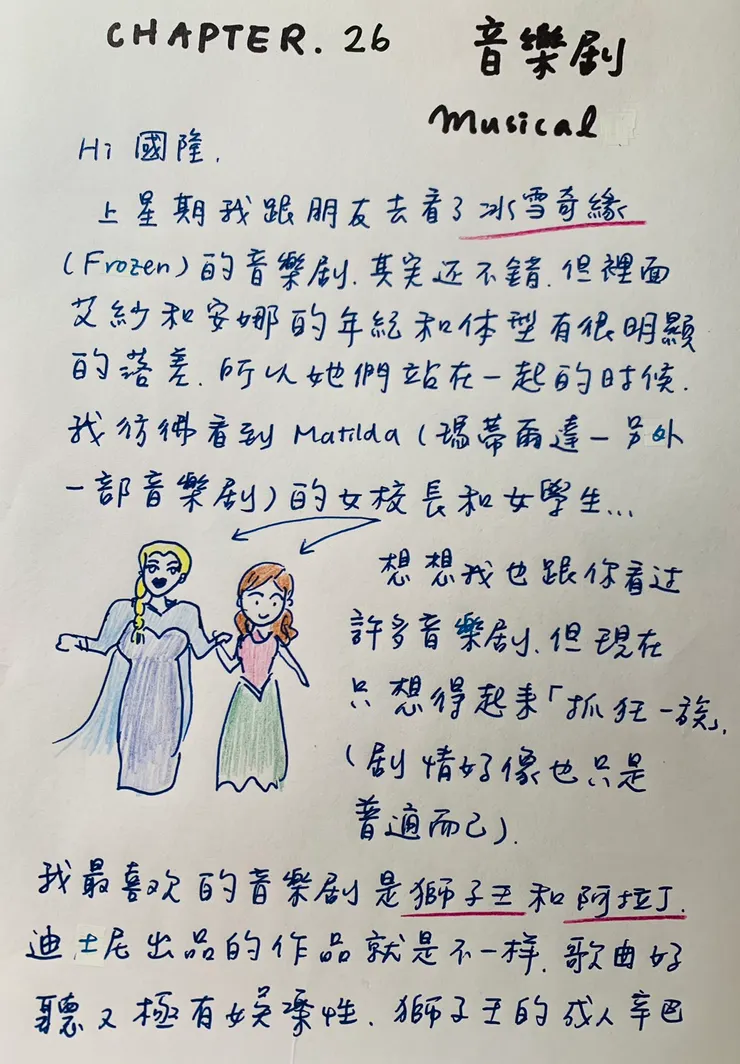 CHAPTER. 26
音樂剧
Musical
Hi 國隆,
上星期我跟朋友去看了冰雪奇緣
(Frozen)的音樂剧. 其实还不錯. 但裡面
艾紗和安娜的年紀和体型有很明顯
的落差. 所以她們站在一起的时候.
我彷彿看到 Matilda (瑪蒂爾達一另外
一部音樂剧)的女校長和女學生...
想想我也跟你看过
許多音樂剧. 但現在
只想得起来「抓狂一族」.
(剧情好像也只是
普適而已).
我最喜欢的音樂剧是獅子王和阿拉丁.
迪士尼出品的作品就是不一样. 歌曲好
聽又極有娛樂性. 獅子王的成人辛巴